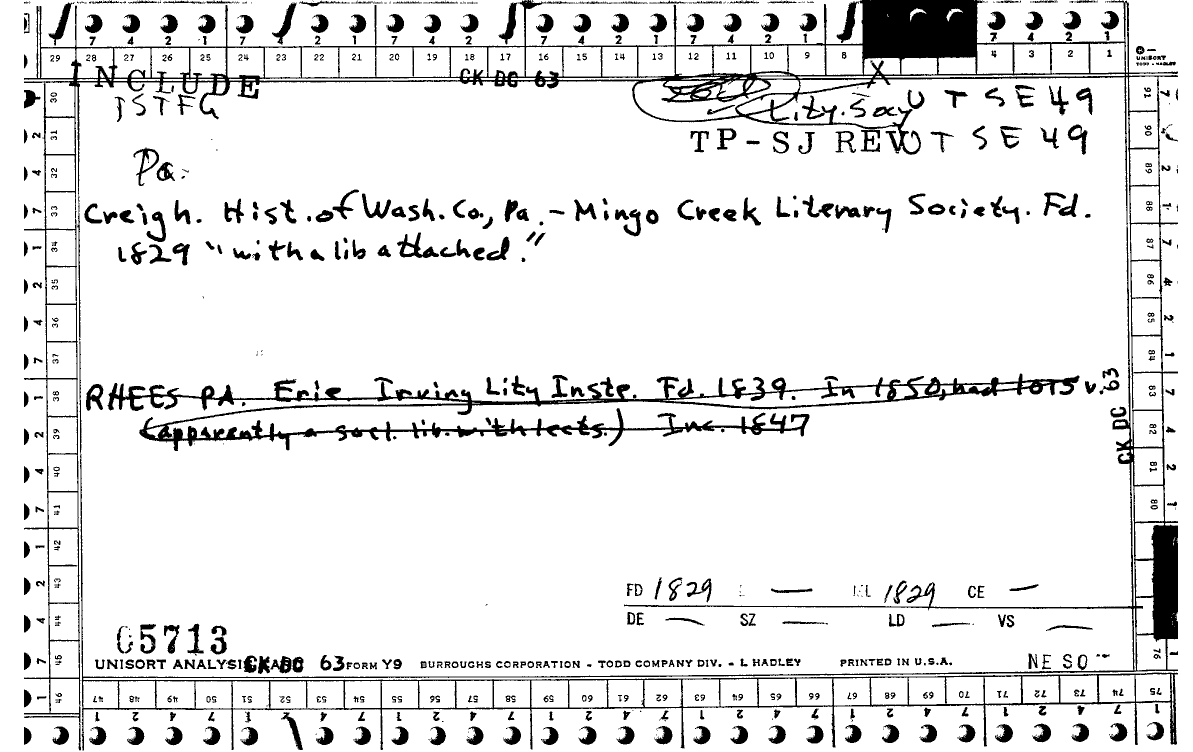 29 28 27 26 25 24 23 22 21 20 19 18 17 16 15 14 13 12 11 10 9 8 4 3 2 1
INCLUDE CK DC 63
X
Lity. Socy U T S E 49
TP-SJ REV U T S E 49
Pa.
Creigh. Hist. of Wash. Co., Pa. - Mingo Creek Literary Society. Fd.
1829 "with a lib attached."
RHEES PA. Erie Irving Lity Inste. Fd. 1839. In 1850, had 1015 v.
(apparently a socl. lib. with lects.) Inc. 1847
CK DC 63
FD 1829 — 1829 CE —
DE — SZ — LD — VS —
05713
UNISORT ANALYSIS CARD CK DC 63 FORM Y9 BURROUGHS CORPORATION - TODD COMPANY DIV. - L HADLEY PRINTED IN U.S.A. NE SO
46 47 48 49 50 51 52 53 54 55 56 57 58 59 60 61 62 63 64 65 66 67 68 69 70 71 72 73 74 75